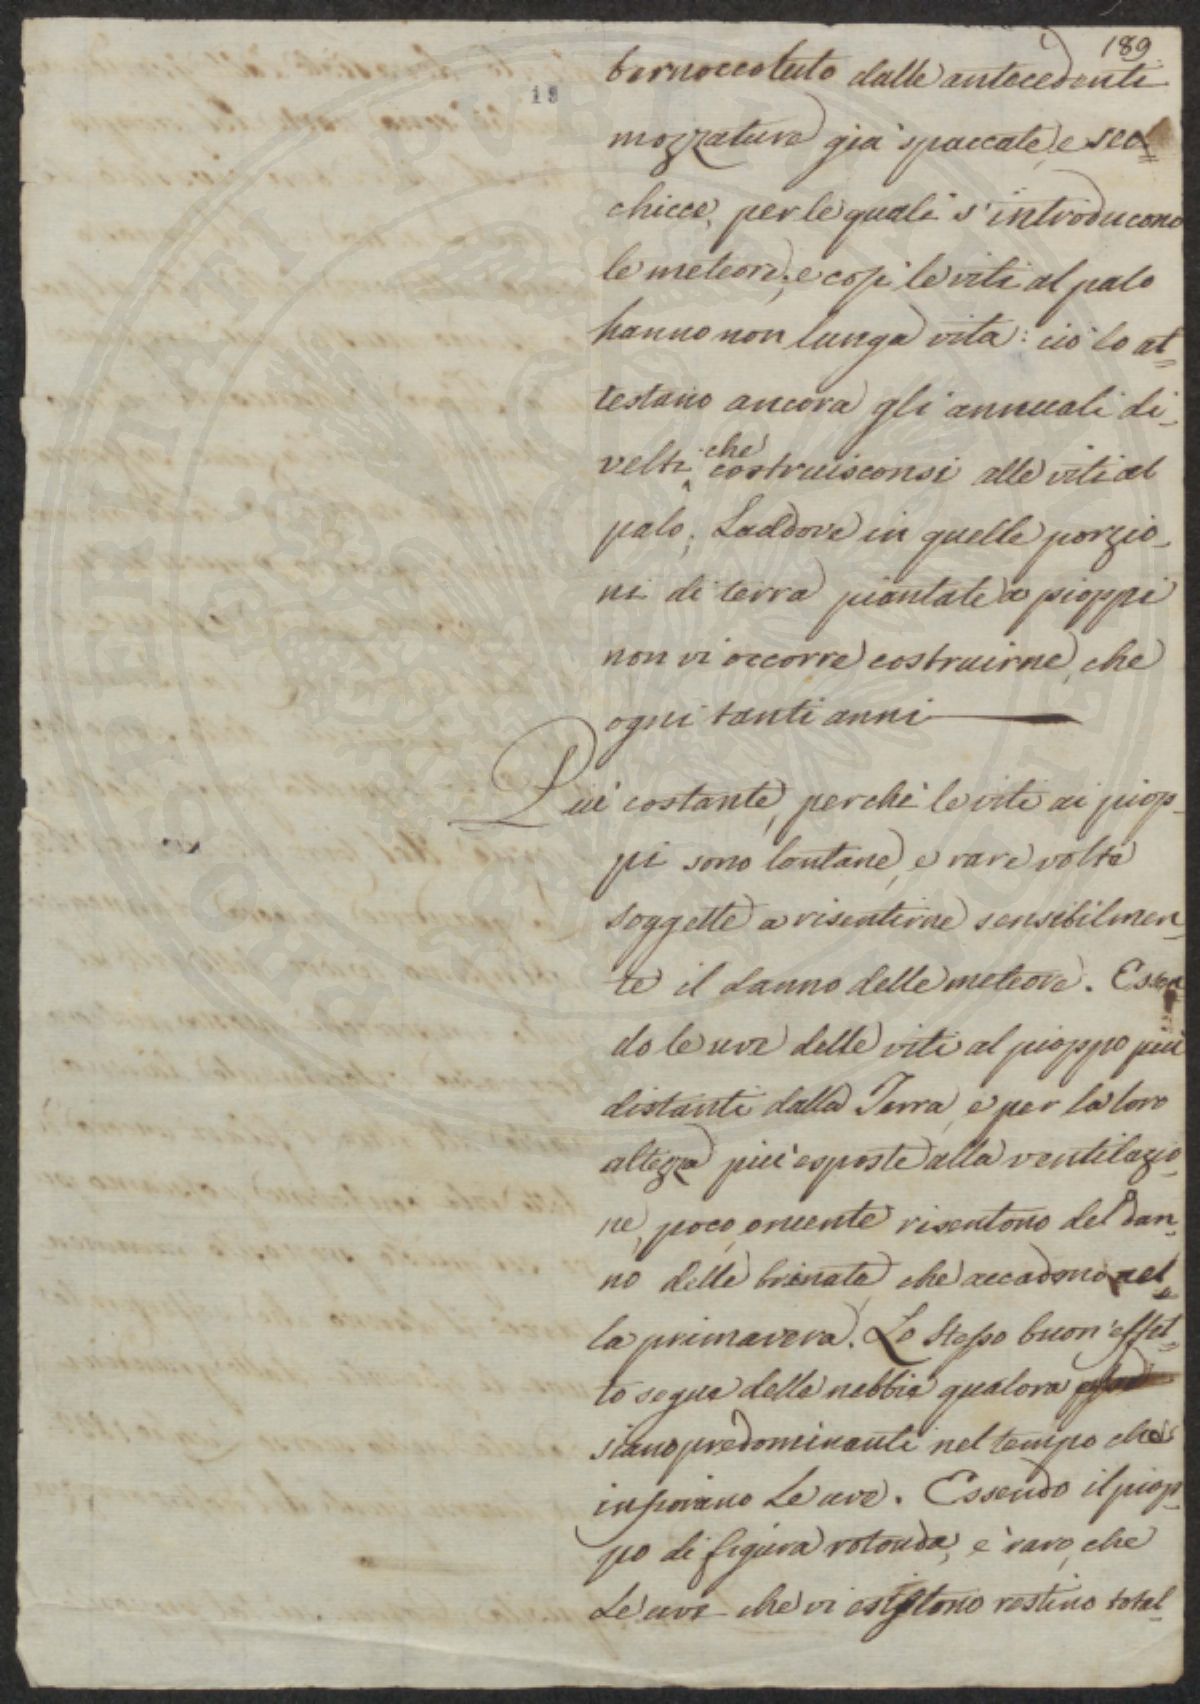 189
19
bernoccoluto dalle antecedenti
mozzature già spaccate, e sec=
chicce, per le quali s'introducono
le meteore; e così le viti al palo
hanno non lunga vita: ciò lo at=
testano ancora gli annuali di=
velti che costruisconsi alle viti al
palo; Laddove in quelle porzio=
ni di terra piantate a pioppi
non vi occorre costruirne, che
ogni tanti anni
Più costante, perchè le viti ai piop=
pi sono lontane, e rare volte
soggette a risentirne sensibilmen=
te il danno delle meteore. Essen=
do le uve delle viti al pioppo più
distanti dalla Terra, e per la loro
altezza più esposte alla ventilazio=
ne, poco, o niente risentono del dan=
no delle brinate, che accadono nel=
la primavera. Lo stesso buon'effet=
to segue delle nebbie qualora esse
siano predominanti nel tempo che
infiorano Le uve. Essendo il piop=
po di figura rotonda, è raro, che
Le uve che vi esistono restino total=